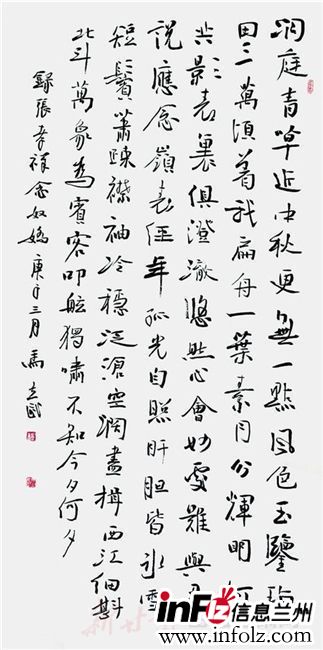 洞庭青草近中秋更無一點風色玉鑒瓊
田三萬頃着我扁舟一葉素月分輝明河
共影表裏俱澄澈悠然心會妙處難與君
說應念嶺表經年孤光自照肝膽皆冰雪
短鬢蕭疎襟袖冷穩泛滄空闊盡挹西江細斟
北斗萬象為賓客叩舷獨嘯不知今夕何夕
錄張孝祥念奴嬌庚子三月馬
inF lz 信息兰州
www.infolz.com